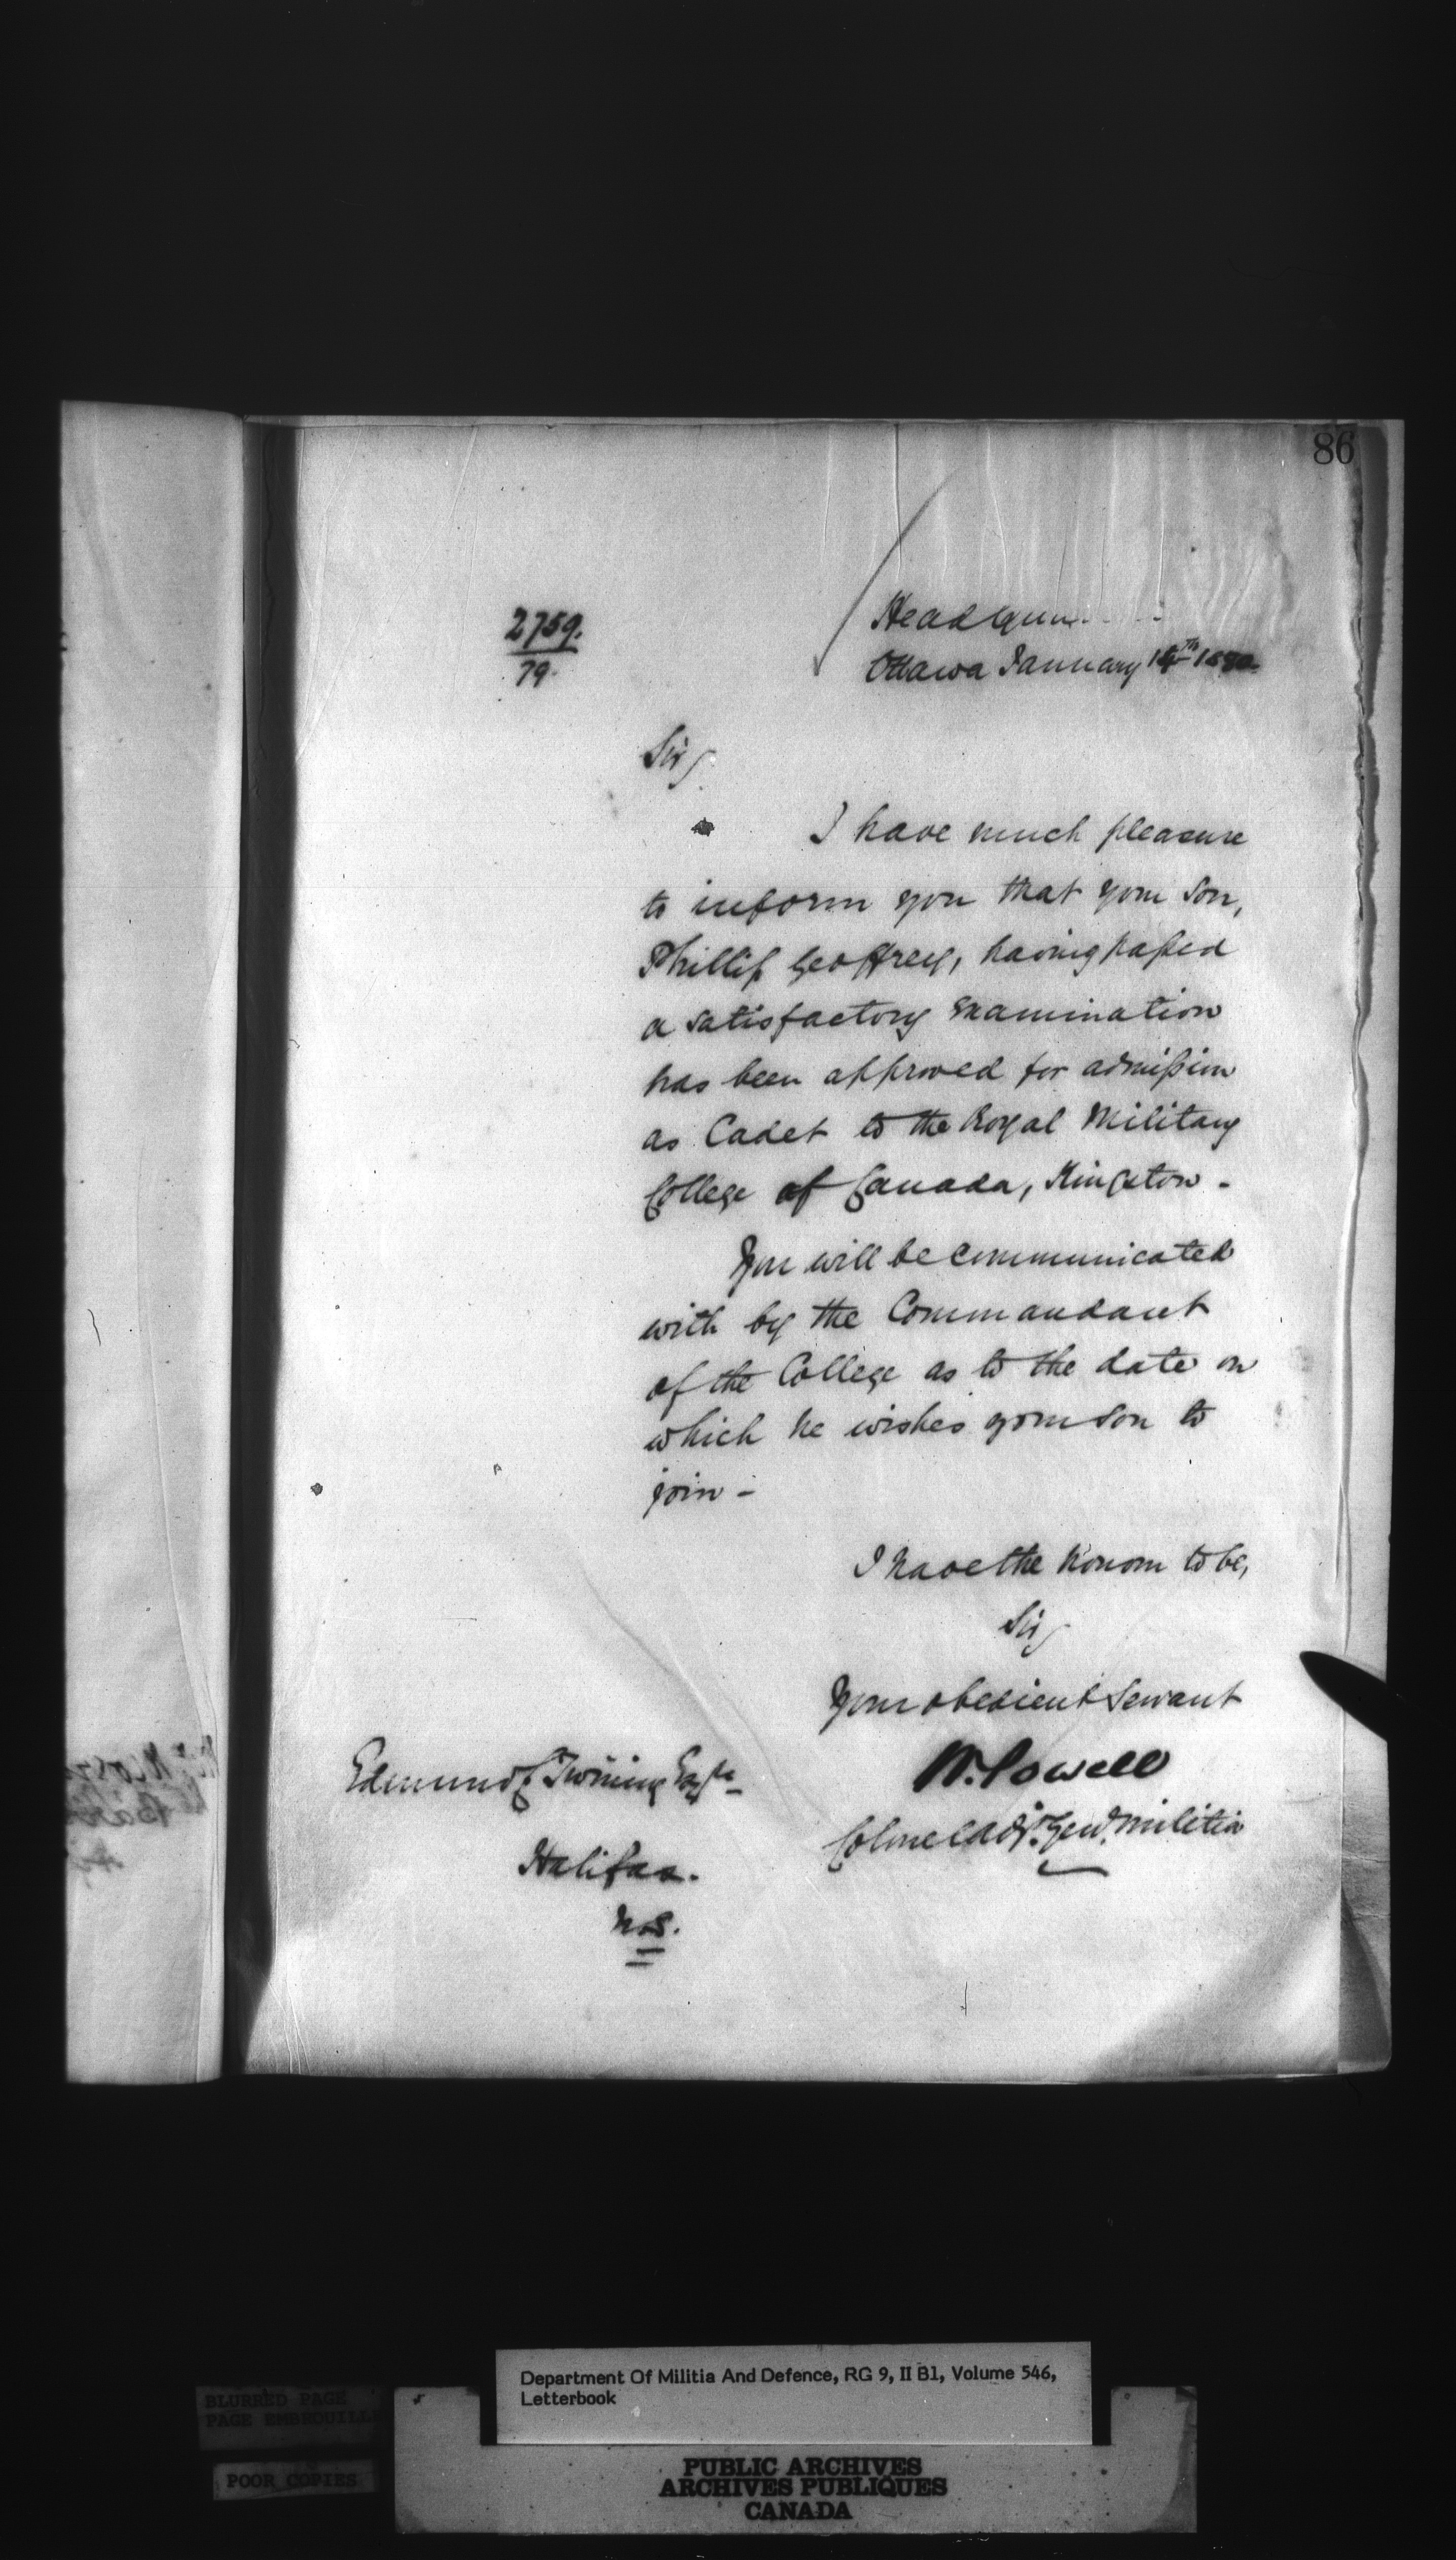 86
2759.
79.
Ottawa January
Sir,
I have much pleasure
to inform you that your Son,
Phillip Geoffrey, having passed
a satisfactory examination
has been approved for admission
as Cadet to the Royal Military
College of Canada, Kingston -
You will be communicated
with by the Commandant
of the College as to the date on
which he wishes your Son to
join -
I have the honour to be,
Sir,
Your obedient Servant
W. Powell
Colonel Adjt. Genl. Militia
Edmund Twining Esqre
Halifax.
N.S.
Department Of Militia And Defence, RG 9, II B1, Volume 546,
Letterbook
BLURRED PAGE
PAGE EMBROUILL
POOR COPIES
PUBLIC ARCHIVES
ARCHIVES PUBLIQUES
CANADA